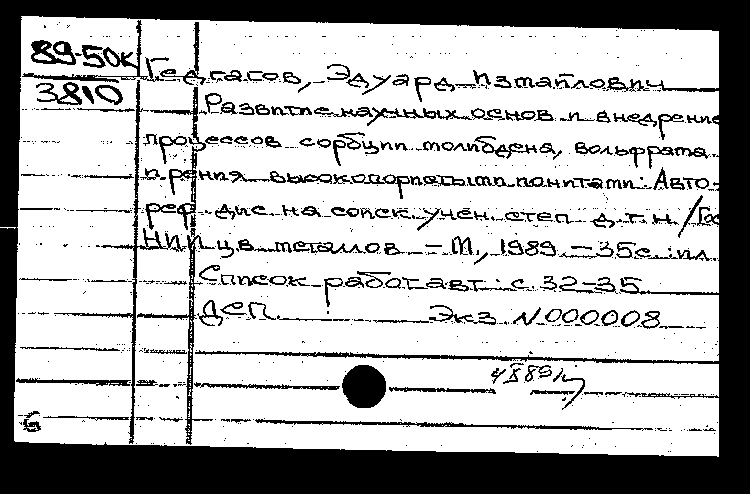 89-50к
3810
Гедгагов, Эдуард Измайлович
Развитие научных основ и внедрение
процессов сорбции молибдена, вольфрама
и рения высокопористыми ионитами: Авто-
реф. дис. на соиск. учен. степ. д.т.н. / Гос
НИИ цв. металлов. - М., 1989. - 35с.: ил.
Список работ авт.: с. 32-35
ДСП. Экз. N 000008
6